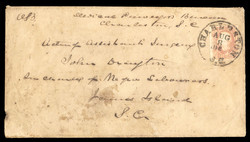 Medical Purveyor's Bureau
Charleston, S.C.
Acting Assistant Surgeon
John Drayton
In charge of Negro Laborers
James Island
S.C.
CHARLESTON
AUG
8
S.C.